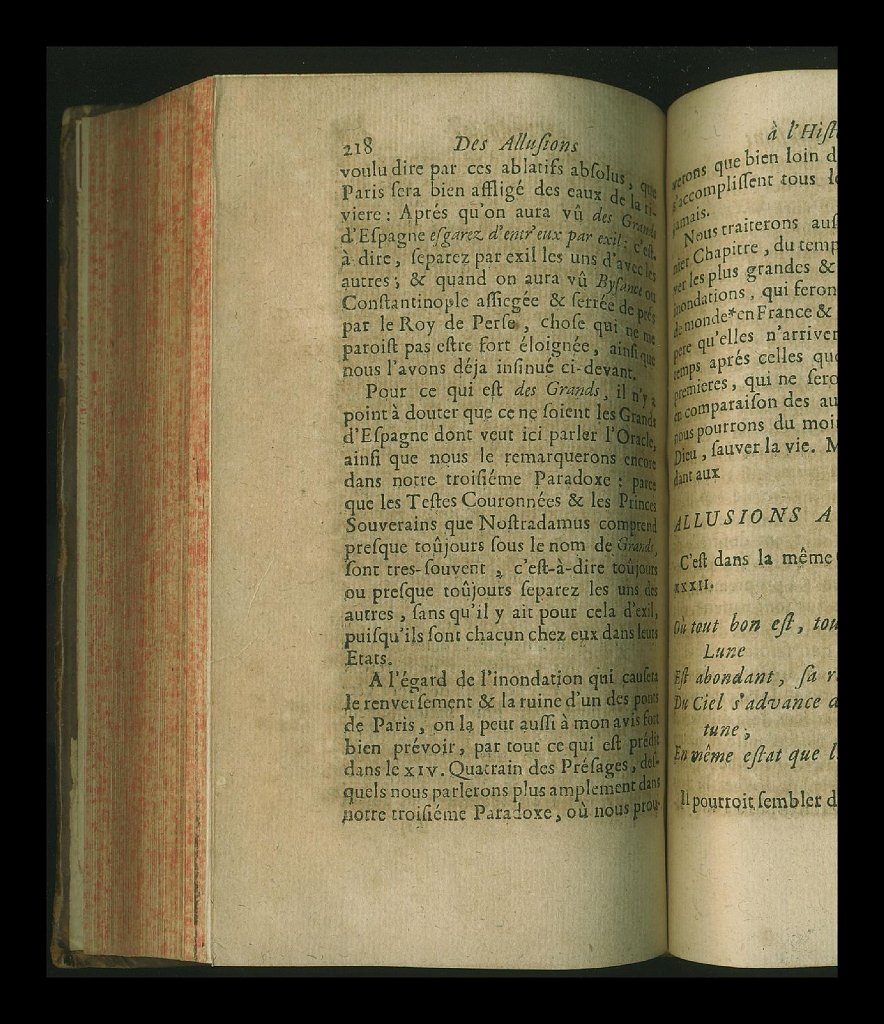 218 Des Alluſions
voulu dire par ces ablatifs abſolus, que
Paris ſera bien affligé des eaux de la ri-
viere: Aprés qu'on aura vû des Grands
d'Eſpagne eſgarez d'entr'eux par exil; c'eſt-
à dire, ſeparez par exil les uns d'avec les
autres; & quand on aura vû Byſance ou
Conſtantinople aſſiegée & ſerrée de prés
par le Roy de Perſe, choſe qui ne me
paroiſt pas eſtre fort éloignée, ainſi que
nous l'avons déja inſinué ci-devant.
Pour ce qui eſt des Grands, il n'y a
point à douter que ce ne ſoient les Grands
d'Eſpagne dont veut ici parler l'Oracle,
ainſi que nous le remarquerons encore
dans notre troiſiéme Paradoxe: parce
que les Teſtes Couronnées & les Princes
Souverains que Noſtradamus comprend
preſque toûjours ſous le nom de Grands,
ſont tres-ſouvent, c'eſt-à-dire toûjours
ou preſque toûjours ſeparez les uns des
autres, ſans qu'il y ait pour cela d'exil,
puiſqu'ils ſont chacun chez eux dans leurs
Etats.
A l'égard de l'inondation qui cauſera
le renverſement & la ruine d'un des ponts
de Paris, on la peut auſſi à mon avis fort
bien prévoir, par tout ce qui eſt prédit
dans le XIV. Quatrain des Préſages, deſ-
quels nous parlerons plus amplement dans
notre troiſiéme Paradoxe, où nous prou-
à l'Hiſt
verons que bien loin d
s'accompliſſent tous l
jamais.
Nous traiterons auſ
nier Chapitre, du temp
ver les plus grandes &
inondations, qui feron
de monde*en France &
pere qu'elles n'arriver
temps aprés celles que
premieres, qui ne ſero
en comparaiſon des au
nous pourrons du moi
Dieu, ſauver la vie. M
dant aux
ALLUSIONS A
C'eſt dans la même
XXXII.
Où tout bon eſt, tou
Lune
Eſt abondant, ſa r
Du Ciel s'advance a
tune,
En même eſtat que l
Il pourroit ſembler d